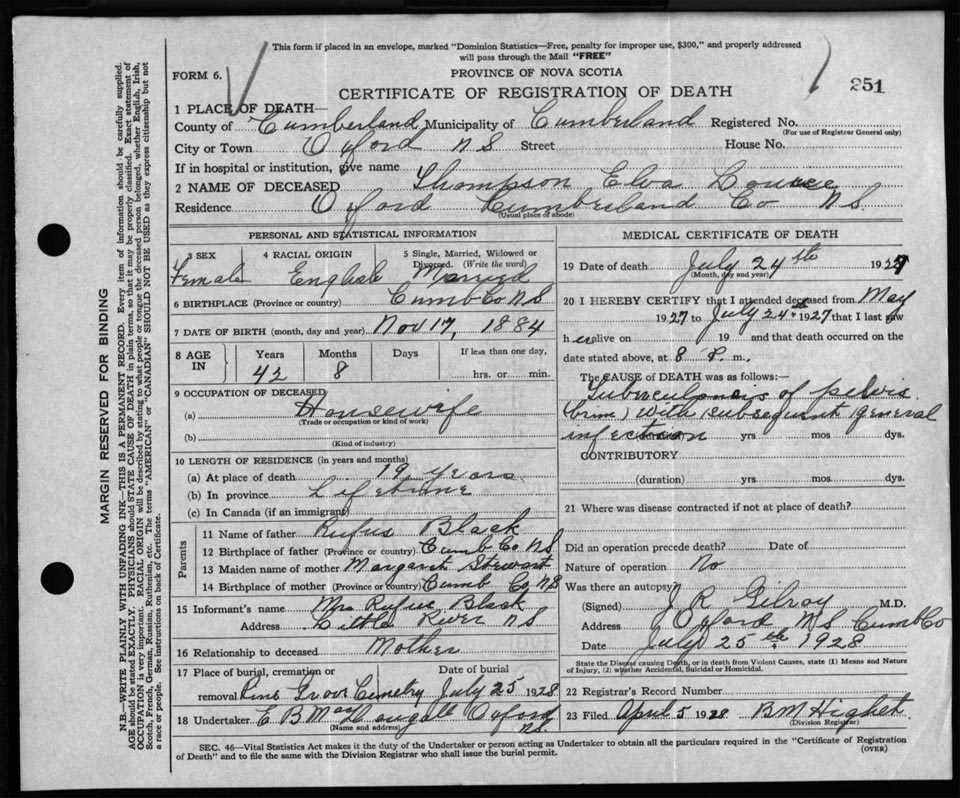 This form if placed in an envelope, marked "Dominion Statistics—Free, penalty for improper use, $300," and properly addressed
will pass through the Mail "FREE"
FORM 6.
PROVINCE OF NOVA SCOTIA
351
CERTIFICATE OF REGISTRATION OF DEATH
1 PLACE OF DEATH—
County of Cumberland Municipality of Cumberland Registered No.
(For use of Registrar General only)
City or Town Oxford N S Street House No.
If in hospital or institution, give name
2 NAME OF DECEASED Thompson Elva
Residence Oxford Cumberland Co N S.
(Usual place of abode)
PERSONAL AND STATISTICAL INFORMATION
3 SEX 4 RACIAL ORIGIN 5 Single, Married, Widowed or
Divorced. (Write the word)
Female English Married
6 BIRTHPLACE (Province or country) Cumb Co N S
7 DATE OF BIRTH (month, day and year) Nov 17, 1884
8 AGE IN Years Months Days If less than one day,
42 8 hrs. or min.
9 OCCUPATION OF DECEASED
(a) Housewife
(Trade or occupation or kind of work)
(b)
(Kind of industry)
10 LENGTH OF RESIDENCE (in years and months)
(a) At place of death 19 years
(b) In province Lifetime
(c) In Canada (if an immigrant)
Parents
11 Name of father Rufus Black
12 Birthplace of father (Province or country) Cumb Co N S
13 Maiden name of mother Margaret Stewart
14 Birthplace of mother (Province or country) Cumb Co N S
15 Informant's name Mrs Rufus Black
Address Little River N S
16 Relationship to deceased Mother
17 Place of burial, cremation or Date of burial
removal Pine Grove Cemetry July 25 1928
18 Undertaker E B Mac Dougall Oxford
(Name and address) N S.
MEDICAL CERTIFICATE OF DEATH
19 Date of death July 24th 1927
(Month, day and year)
20 I HEREBY CERTIFY that I attended deceased from May
1927 to July 24th 1927 that I last saw
h er alive on 19 and that death occurred on the
date stated above, at 8 P. m.
The CAUSE OF DEATH was as follows:—
Tuberculosis of pelvis
with subsequent general
infection yrs. mos dys.
CONTRIBUTORY
(duration) yrs. mos. dys.
21 Where was disease contracted if not at place of death?
Did an operation precede death? Date of
Nature of operation No
Was there an autopsy
(Signed) J R Gilroy M.D.
Address Oxford N S Cumb Co
Date July 25th 1928
State the Disease causing Death, or in death from Violent Causes, state (1) Means and Nature
of Injury, (2) whether Accidental, Suicidal or Homicidal.
22 Registrar's Record Number
23 Filed April 5 1928 B M Highet
(Division Registrar)
SEC. 46—Vital Statistics Act makes it the duty of the Undertaker or person acting as Undertaker to obtain all the particulars required in the "Certificate of Registration
of Death" and to file the same with the Division Registrar who shall issue the burial permit.
(OVER)
MARGIN RESERVED FOR BINDING
N.B.—WRITE PLAINLY WITH UNFADING INK—THIS IS A PERMANENT RECORD. Every item of information should be carefully supplied.
AGE should be stated EXACTLY. PHYSICIANS should STATE CAUSE OF DEATH in plain terms, so that it may be properly classified. Exact statement of
OCCUPATION is very important. RACIAL ORIGIN will be described by stating to what people or tongue the deceased person belonged, whether English, Irish,
Scotch, French, German, Russian, Ruthenian, etc. The terms "AMERICAN" or "CANADIAN" SHOULD NOT BE USED as they express citizenship but not
a race or people. See instructions on back of Certificate.